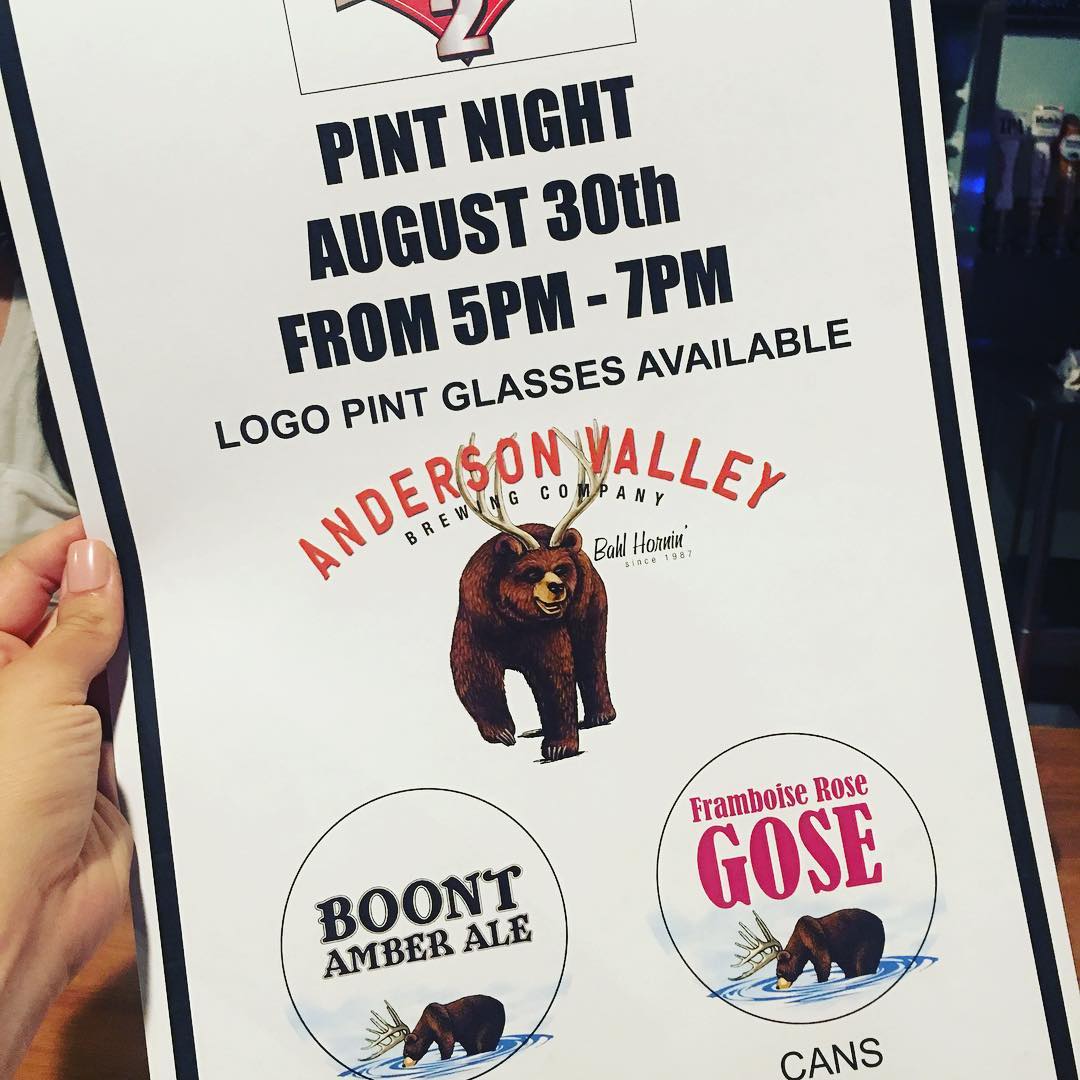 2
PINT NIGHT
AUGUST 30th
FROM 5PM - 7PM
LOGO PINT GLASSES AVAILABLE
ANDERSON VALLEY
BREWING COMPANY
Bahl Hornin'
since 1987
BOONT
AMBER ALE
Framboise Rose
GOSE
CANS
IPA